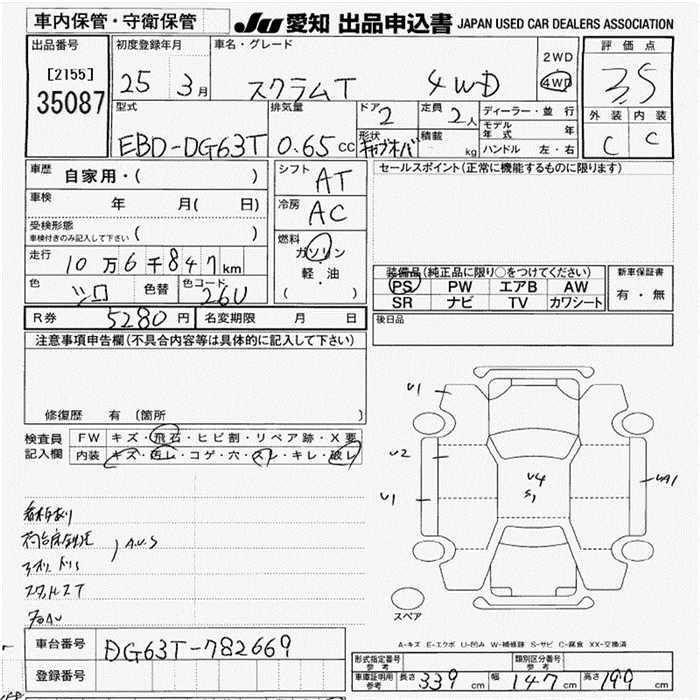 車内保管・守衛保管
JU 愛知 出品申込書 JAPAN USED CAR DEALERS ASSOCIATION
出品番号 初度登録年月 車名・グレード 2WD 評価点
[2155] 25 3月 スクラムT 4WD 4WD 3.5
35087
型式 排気量 ドア 2 定員 2人 ディーラー・並行 外装 内装
モデル年式 年
EBD-DG63T 0.65 cc 形状 積載 kg ハンドル 左・右 C C
車歴 自家用・( ) シフト AT セールスポイント(正常に機能するものに限ります)
車検 年 月( 日) 冷房 AC
受検形態
車検付きのみ記入して下さい ( )
走行 10万6千847km 燃料 ガソリン
軽・油
( )
装備品(純正品に限り○をつけてください) 新車保証書
色 シロ 色替 色コード 26U PS PW エアB AW 有・無
SR ナビ TV カワシート
R券 5280円 名変期限 月 日 後日品
注意事項申告欄(不具合内容等は具体的に記入して下さい)
修復歴 有 〔箇所 〕
検査員 FW キズ・飛石・ヒビ割・リペア跡・X要
記入欄 内装 キズ・汚レ・コゲ・穴・スレ・キレ・破レ
U1
U2
U4
S1
U1
UA1
A.U.S
スペア
A-キズ E-エクボ U-凹み W-補修跡 S-サビ C-腐食 XX-交換済
車台番号 DG63T-782669
登録番号
形式指定番号 参考 類別区分番号 参考
車庫証明用 参考 長さ 339 cm 幅 147 cm 高さ 190 cm